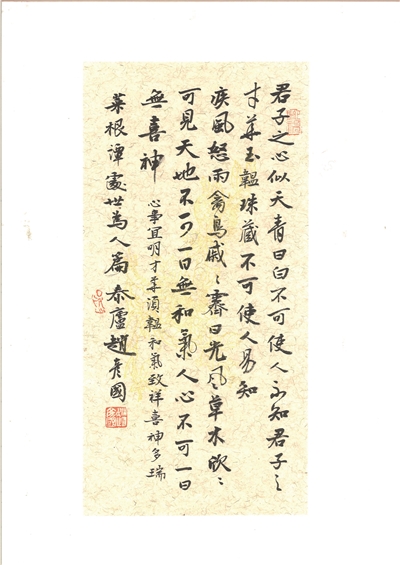 君子之心似天青日白不可使人不知君子之
才華玉韞珠藏不可使人易知
疾風怒雨禽鳥戚〻霽日光風草木欣〻
可見天地不可一日無和氣人心不可一日
無喜神
心事宜明才華須韞和氣致祥喜神多瑞
菜根譚處世為人篇泰廬趙彥國